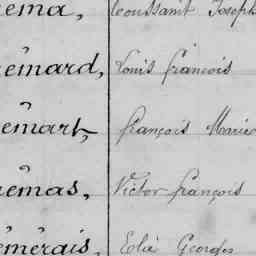 ema, Toussaint Joseph
émard, Louis françois
emart, françois Marie
émas, Victor françois
émérais, Elie Georges